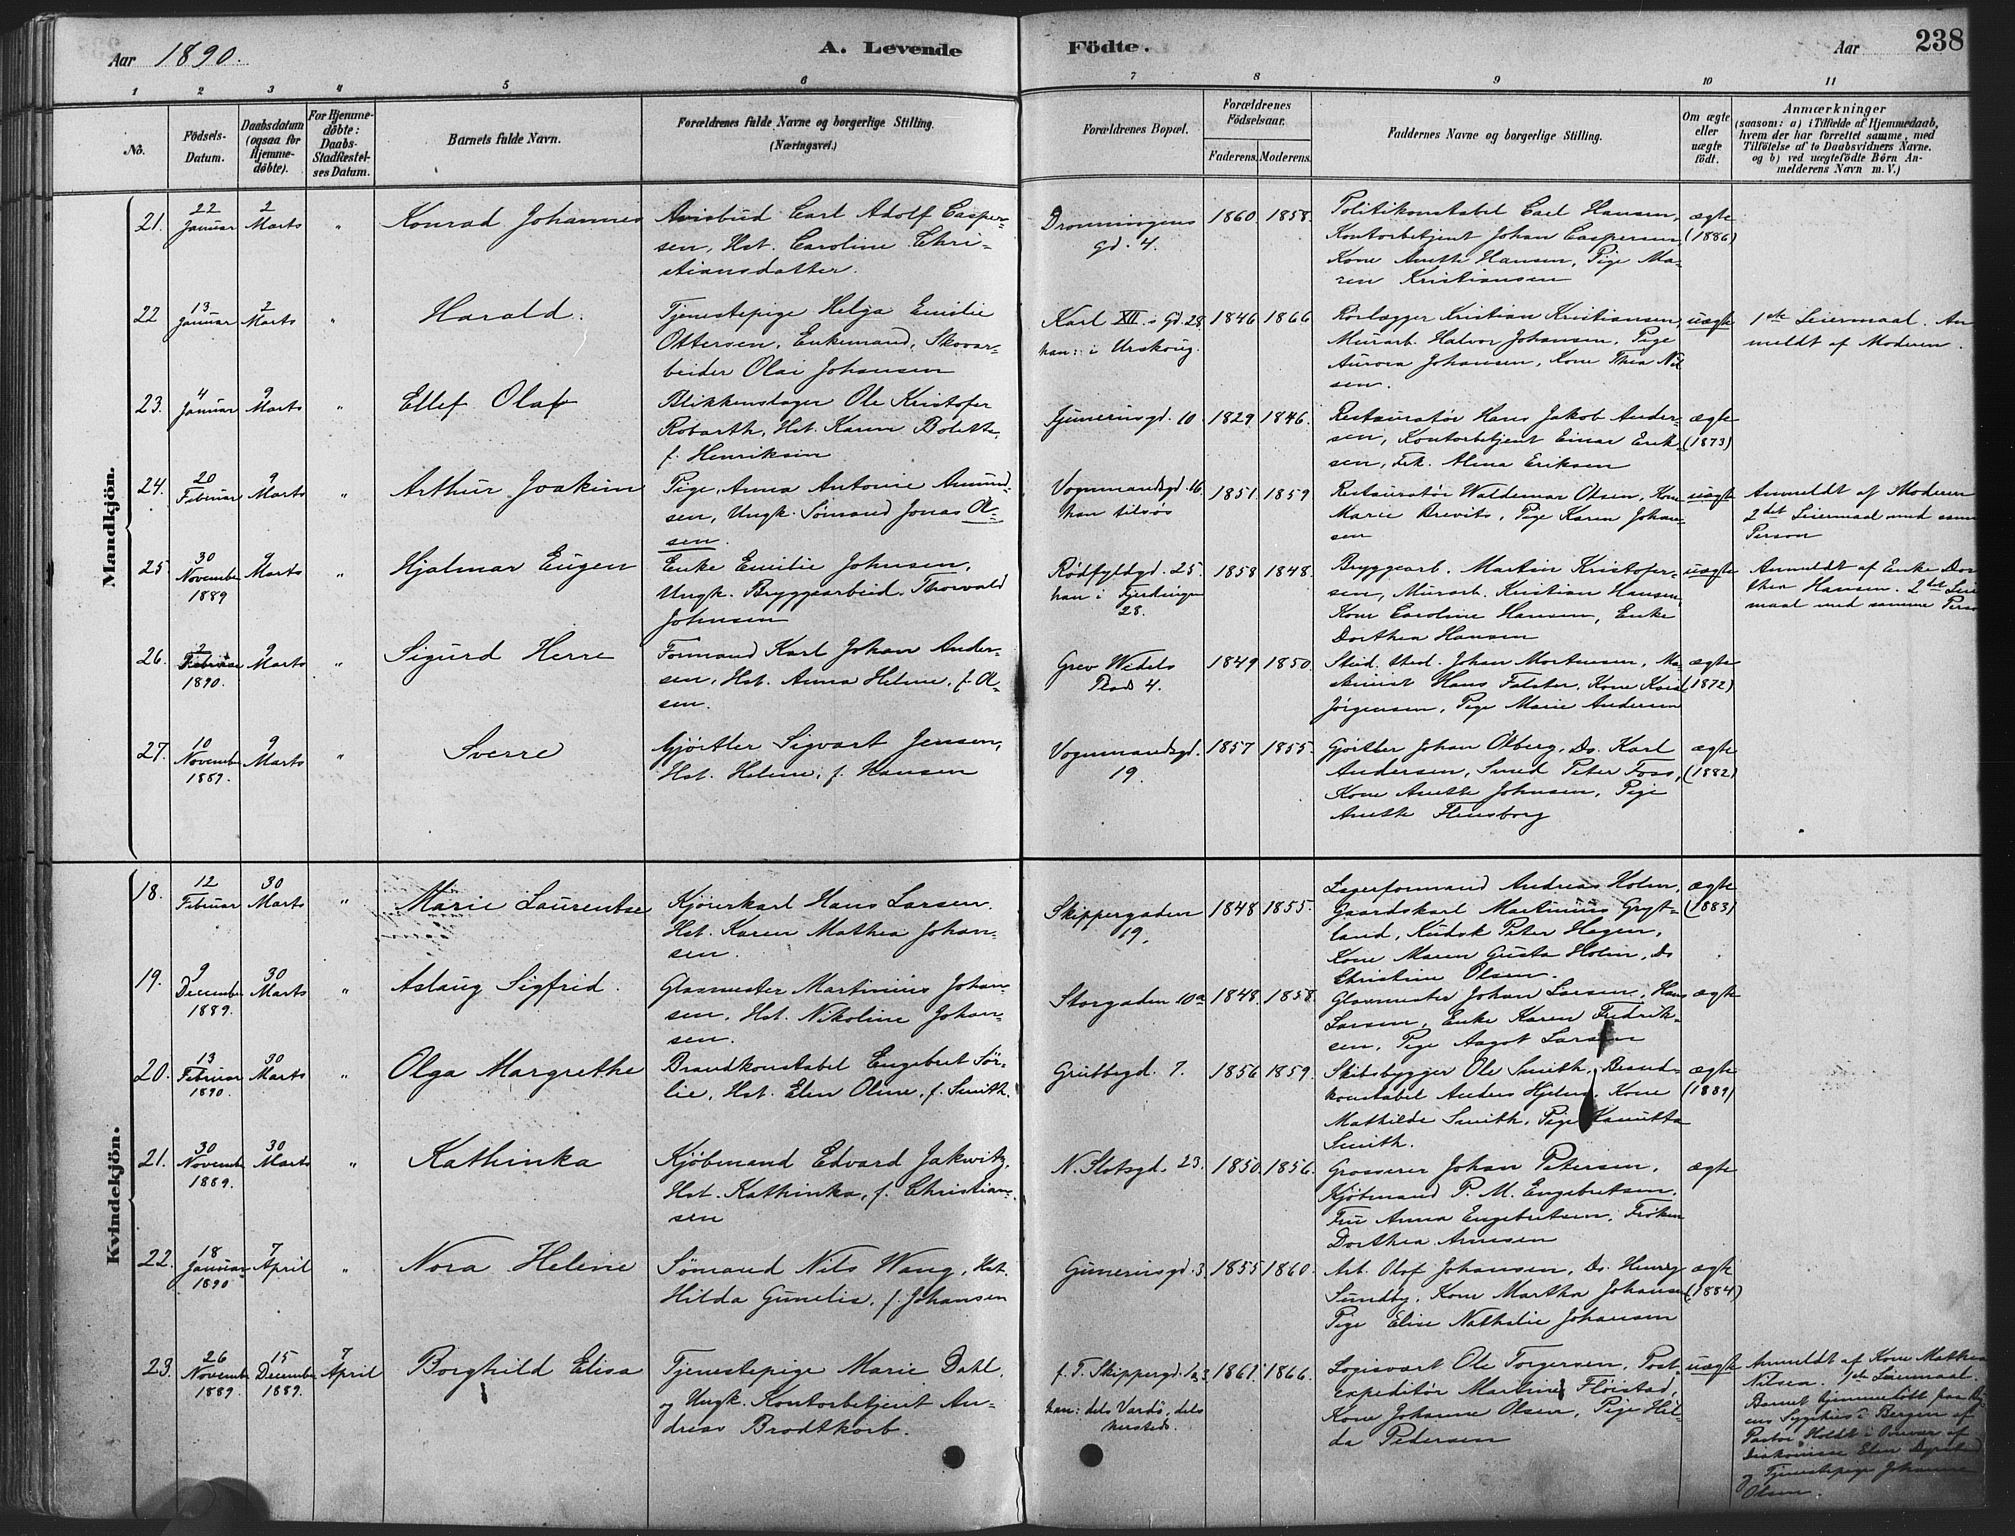 Aar 1890.
A. Levende
Födte.
Aar
238
1 2 3 4 5 6 7 8 9 10 11
No.
Födsels-
Datum.
Daabsdatum
(ogsaa for
Hjemme-
døbte).
For Hjemme-
døbte:
Daabs-
Stadfæstel-
ses Datum.
Barnets fulde Navn.
Forældrenes fulde Navne og borgerlige Stilling.
(Næringsvei.)
Forældrenes Bopæl.
Forældrenes
Födselsaar.
Faderens. Moderens.
Faddernes Navne og borgerlige Stilling.
Om ægte
eller
uægte
födt.
Anmærkninger
(saasom: a) i Tilfælde af Hjemmedaab,
hvem der har forrettet samme, med
Tilföielse af to Daabsvidners Navne.
og b) ved uægtefödte Börn An-
melderens Navn m. V.)
Mandkjön.
21.
22
Januar
2
Marts
"
Konrad Johannes
Avisbud Carl Adolf Casper-
sen, Hst. Caroline Chri-
stiansdatter.
Dronningens
gd. 4.
1860
1858.
Politikonstabel Carl Hansen,
Kontorbetjent Johan Caspersen,
Kone Anette Hansen, Pige Ma-
ren Kristiansen
ægte
(1886)
22
13
Januar
2
Marts
"
Harald.
Tjenestepige Helga Emilie
Ottersen, Enkemand, Skovar-
beider Olai Johansen
Karl XII.s Gd. 28
han: i Urskoug.
1846
1866
Rörlægger Kristian Kristiansen,
Murarb. Halvor Johansen, Pige
Aurora Johansen, Kone Thea Nil
sen.
uægte
1ste Leiermaal. An
meldt af Moderen.
23.
4
Januar
9
Marts
"
Ellef Olaf
Blikkenslager Ole Kristofer
Robarth, Hst. Karen Bolette,
f. Henriksen
Gjunerusgd. 10
1829
1846.
Restauratør Hans Jakob Ander-
sen, Kontorbetjent Einar Erik
sen, Frk. Alma Eriksen
ægte
(1873)
24.
20
Februar
9
Marts
"
Arthur Joakim
Pige Anna Antonie Amund-
sen, Ungk. Sømand Jonas Ol-
sen.
Vognmandsgd. 16
han tilsøs
1851.
1859
Restauratør Waldemar Olsen, Kone
Marie Brevits, Pige Karen Johan-
sen
uægte
Anmeldt af Moderen
2det Leiermaal med samme
Person
25
30
November
1889
9
Marts
"
Hjalmar Eugen
Enke Emilie Johnsen,
Ungk. Bryggearbeid. Thorvald
Johnsen
Rødfyldgd. 25.
han i Fjerdingen
28.
1858
1848.
Bryggearb. Martin Kristofer-
sen, Murarb. Kristian Hansen,
Kone Caroline Hansen, Enke
Dorthea Hansen
uægte
Anmeldt af Enke Dor
thea Hansen. 2det Leier
maal med samme Person
26.
2
Februar
1890.
9
Marts
"
Sigurd Herre
Formand Karl Johan Ander-
sen, Hst. Anna Helene, f. Ol-
sen.
Grev Wedels
Plads 4.
1849
1850.
Stud. theol. Johan Mortensen, Ma-
skinist Hans Falster, Kone
Jørgensen, Pige Marie Andersen
ægte
(1872)
27.
10
November
1889.
9
Marts
"
Sverre
Gjörtler Sigvart Jensen,
Hst. Helene, f. Hansen
Vognmandsgd.
19.
1857
1855.
Gjörtler Johan Olberg, Do. Karl
Andersen, Smed Peter Foss,
Kone Anette Johnsen, Pige
Anette Flensborg
ægte
(1882)
Kvindekjön.
18.
12
Februar
30
Marts
"
Marie Laurentse
Kjörerkarl Hans Larsen.
Hst. Karen Mathea Johan-
sen.
Skippergaden
19.
1848
1855.
Lagerformand Andreas Holm,
Gaardskarl Martinius Gryt-
land, Kudsk Peter Hagen,
Kone Maren Gusta Holm, Do
Christine Olsen.
ægte
(1883)
19.
9
December
1889.
30
Marts
"
Aslaug Sigfrid.
Glasmester Martinius Johan-
sen, Hst. Nikoline Johan-
sen.
Storgaden 10a
1848.
1858.
Glasmester Johan Larsen, Hans
Larsen, Enke Karen Fredrik-
sen, Pige Aagot Larsen
ægte
20.
13
Februar
1890.
30
Marts
"
Olga Margrethe
Brandkonstabel Engebret Sör-
lie, Hst. Elen Oline, f. Smith.
Grubbegd. 7.
1856
1859.
Skibsbygger Ole Smith, Brand-
konstabel Anders Hjelm, Kone
Mathilde Smith, Pige Kanutta
Smith.
ægte
(1889)
21.
30
Novemb.
1889.
30
Marts
"
Kathinka
Kjöbmand Edvard Jakwitz,
Hst. Kathinka, f. Christian-
sen
N. Slotsgd. 23.
1850.
1856.
Grosserer Johan Petersen,
Kjöbmand P. M. Engebretsen.
Fru Anna Engebretsen, Frøken
Dorthea Arnesen
ægte
22.
18
Januar
1890
7
April
"
Nora Helene
Sömand Nils Wang, Hst.
Hilda Gunelie, f. Johansen
Gunerusgd. 3
1855
1860.
Arb. Olof Johansen, Do. Henry
Sundby, Kone Martha Johansen
Pige Elise Nathalie Johansen
ægte
(1884)
23.
26
Novemb.
1889.
15
December
1889.
7
April
Borghild Elisa
Tjenestepige Marie Dahl,
og Ungk. Kontorbetjent An-
dreas Brodtkorb.
f. T. Skippergd.
han: dels Vardö, dels
hersteds.
1861.
1866.
Logisvært Ole Torgersen, Post
expeditör Martine Flöistad,
Kone Johanne Olsen, Pige Hil-
da Pedersen
uægte
Anmeldt af Kone Mathea
Nilsen. 1ste Leiermaal.
Barnet hjemmedöbt paa
ens Sygehus i Bergen af
Pastor Holdt i Overvær af
Diakonisse Elen
og Tjenestepige Johanne
Olsen.